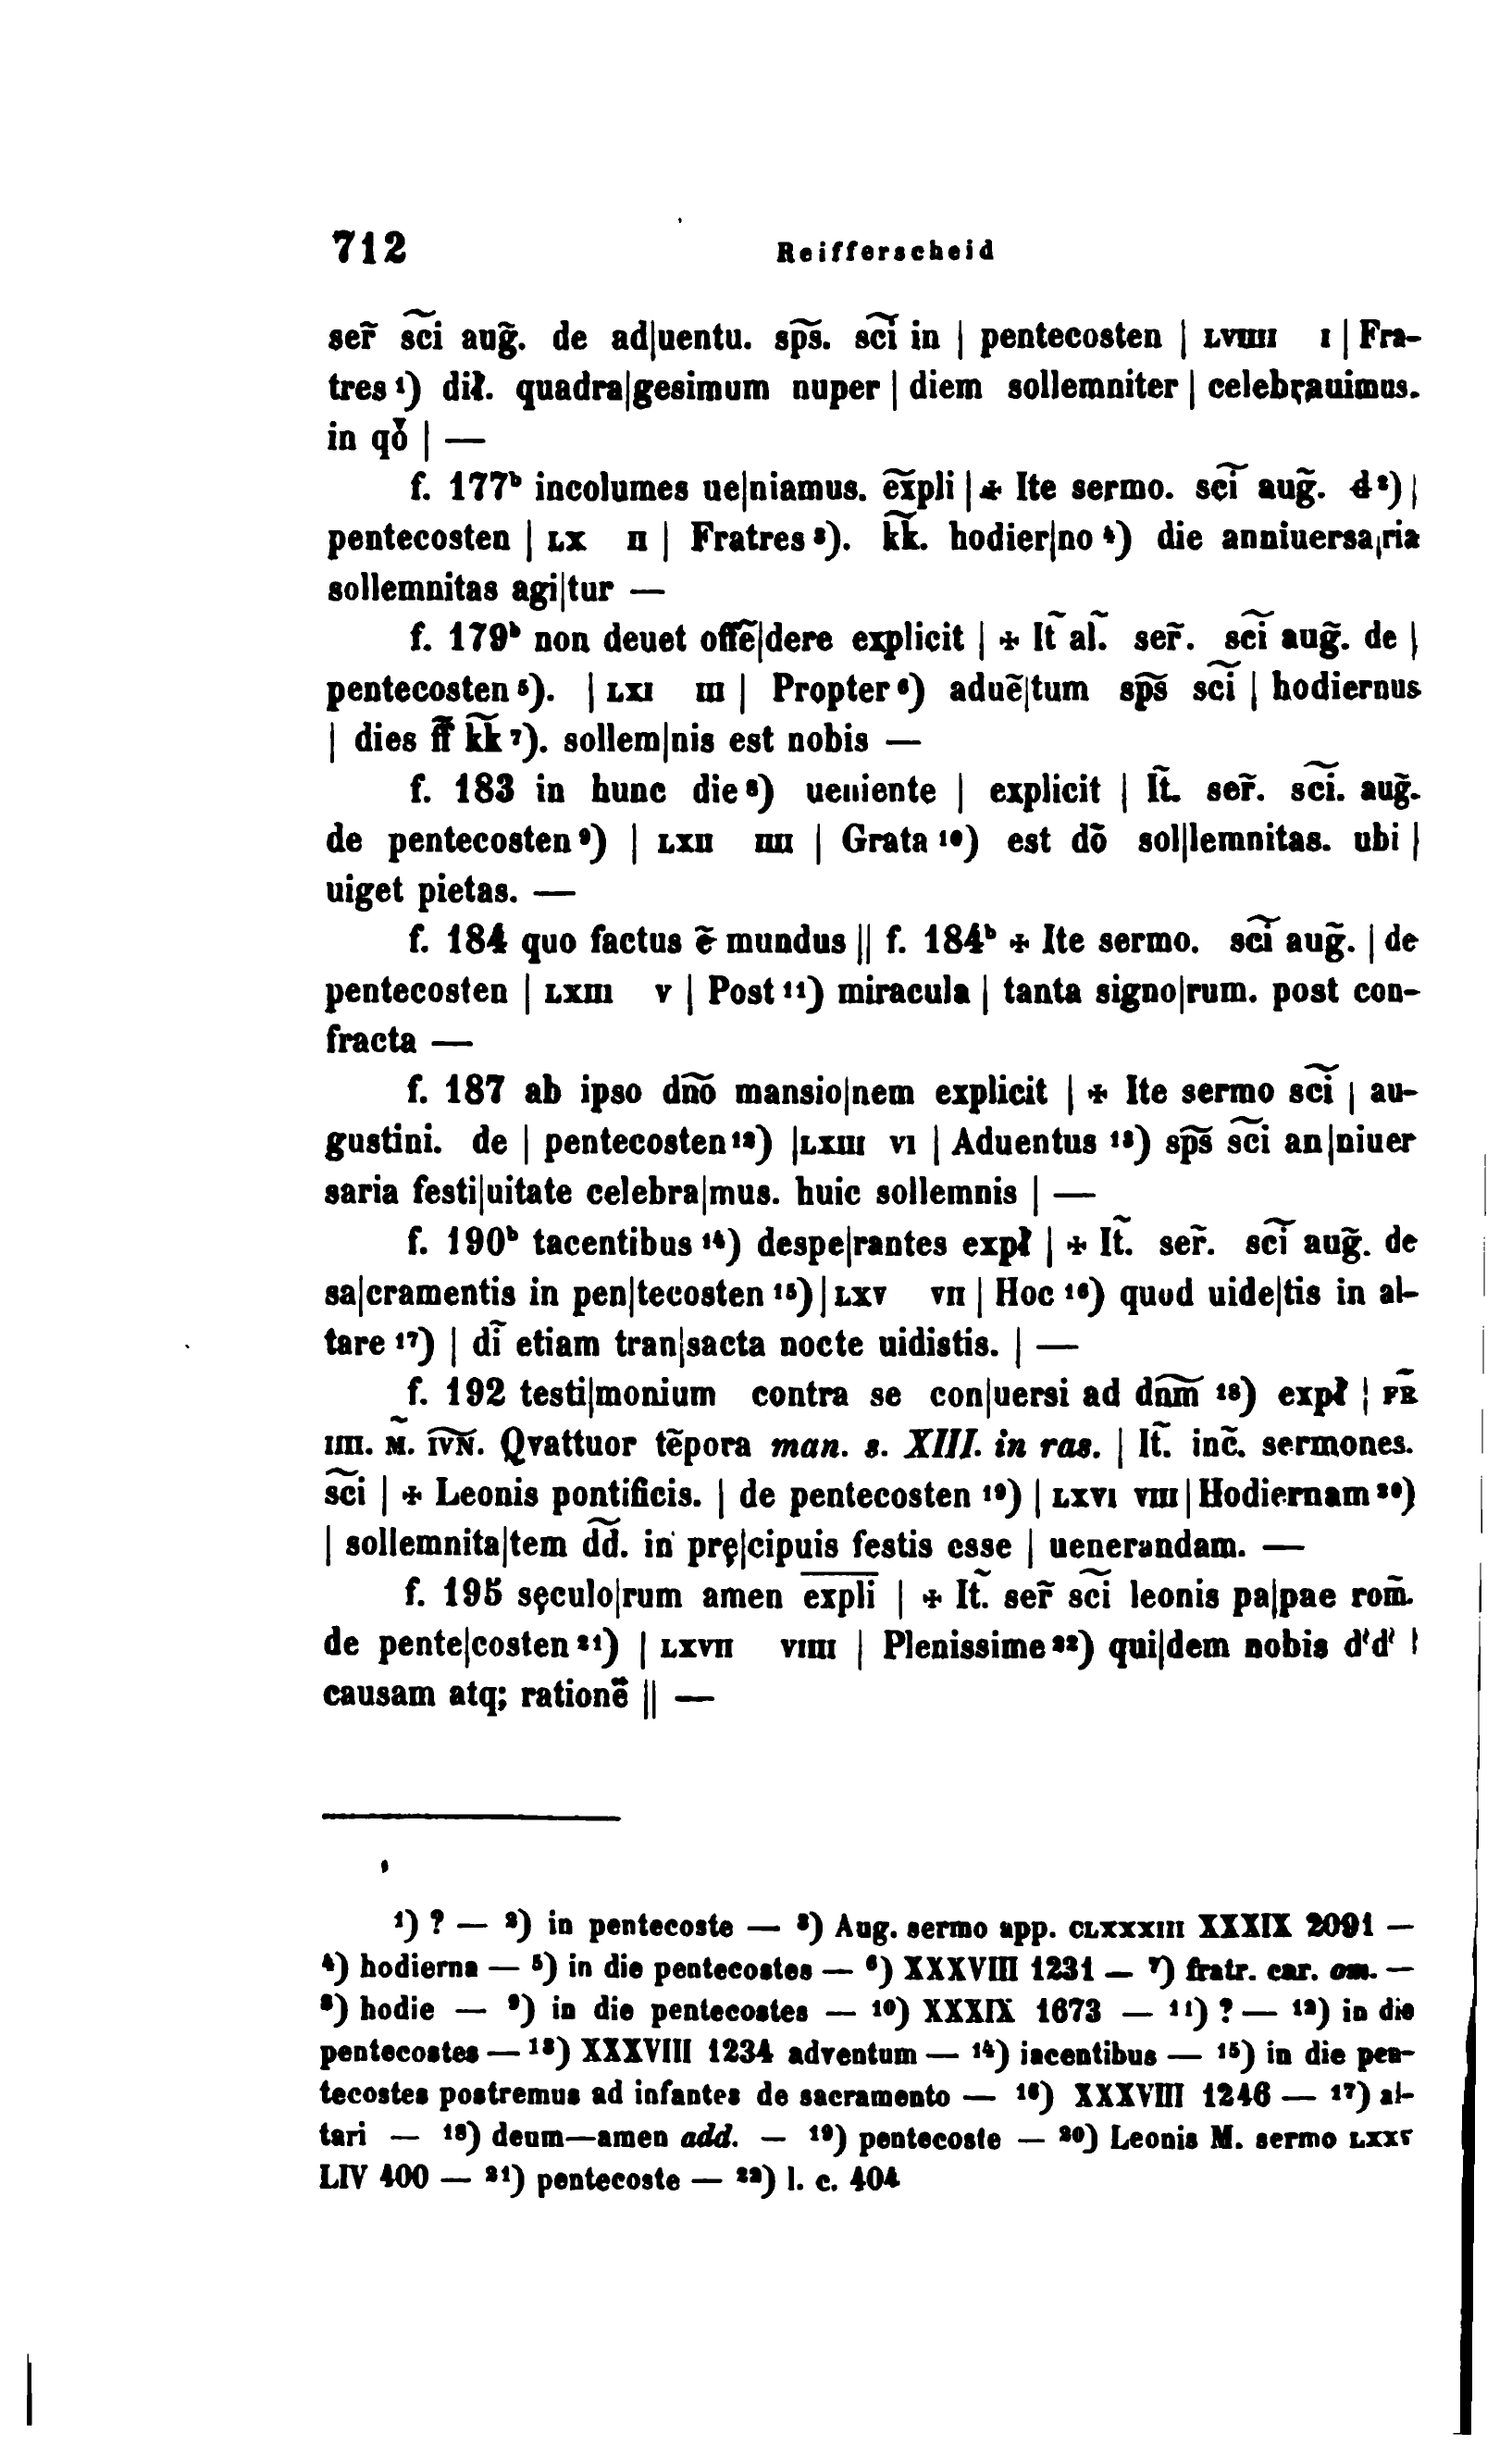 712 Reifferscheid
ser̃ sc͠i aug̃. de ad|uentu. sp͠s. sc͠i in | pentecosten | LVIIII I | Fra-
tres ¹) dił. quadra|gesimum nuper | diem sollemniter | celebrauimus.
in qo | —
f. 177ᵇ incolumes ue|niamus. ex͠pli | + Ite sermo. sc͠i aug̃. d ²) |
pentecosten | LX II | Fratres ³). k͠k. hodier|no ⁴) die anniuersa|ria
sollemnitas agi|tur —
f. 179ᵇ non deuet offẽ|dere explicit | + It̃ al̃. ser̃. sc͠i aug̃. de |
pentecosten ⁵). | LXI III | Propter ⁶) aduẽ|tum sp͠s sc͠i | hodiernus
| dies f͠f k͠k ⁷). sollem|nis est nobis —
f. 183 in hunc die ⁸) ueniente | explicit | It̃. ser̃. sc͠i. aug̃.
de pentecosten ⁹) | LXII IIII | Grata ¹⁰) est dõ sol||lemnitas. ubi |
uiget pietas. —
f. 184 quo factus ẽ mundus || f. 184ᵇ + Ite sermo. sc͠i aug̃. | de
pentecosten | LXIII V | Post ¹¹) miracula | tanta signo|rum. post con-
fracta —
f. 187 ab ipso dn͠o mansio|nem explicit | + Ite sermo sc͠i | au-
gustini. de | pentecosten ¹²) | LXIII VI | Aduentus ¹³) sp͠s sc͠i an|niuer
saria festi|uitate celebra|mus. huic sollemnis | —
f. 190ᵇ tacentibus ¹⁴) despe|rantes expł | + It̃. ser̃. sc͠i aug̃. de
sa|cramentis in pen|tecosten ¹⁵) | LXV VII | Hoc ¹⁶) quod uide|tis in al-
tare ¹⁷) | dĩ etiam tran|sacta nocte uidistis. | —
f. 192 testi|monium contra se con|uersi ad dn͠m ¹⁸) expł | FR̃
IIII. M̃. IV͠N. Qvattuor tẽpora man. s. XIII. in ras. | It̃. inc̃. sermones.
sc͠i | + Leonis pontificis. | de pentecosten ¹⁹) | LXVI VIII | Hodiernam ²⁰)
| sollemnita|tem d͠d. in prę|cipuis festis esse | uenerandam. —
f. 195 sęculo|rum amen expli | + It̃. ser̃ sc͠i leonis pa|pae rom̃.
de pente|costen ²¹) | LXVII VIIII | Plenissime ²²) qui|dem nobis d'd' |
causam atq; rationẽ || —
¹) ? — ²) in pentecoste — ³) Aug. sermo app. CLXXXIII XXXIX 2091 —
⁴) hodierna — ⁵) in die pentecostes — ⁶) XXXVIII 1231 — ⁷) fratr. car. om. —
⁸) hodie — ⁹) in die pentecostes — ¹⁰) XXXIX 1673 — ¹¹) ? — ¹²) in die
pentecostes — ¹³) XXXVIII 1234 adventum — ¹⁴) iacentibus — ¹⁵) in die pen-
tecostes postremus ad infantes de sacramento — ¹⁶) XXXVIII 1246 — ¹⁷) al-
tari — ¹⁸) deum—amen add. — ¹⁹) pentecoste — ²⁰) Leonis M. sermo LXXV
LIV 400 — ²¹) pentecoste — ²²) l. c. 404